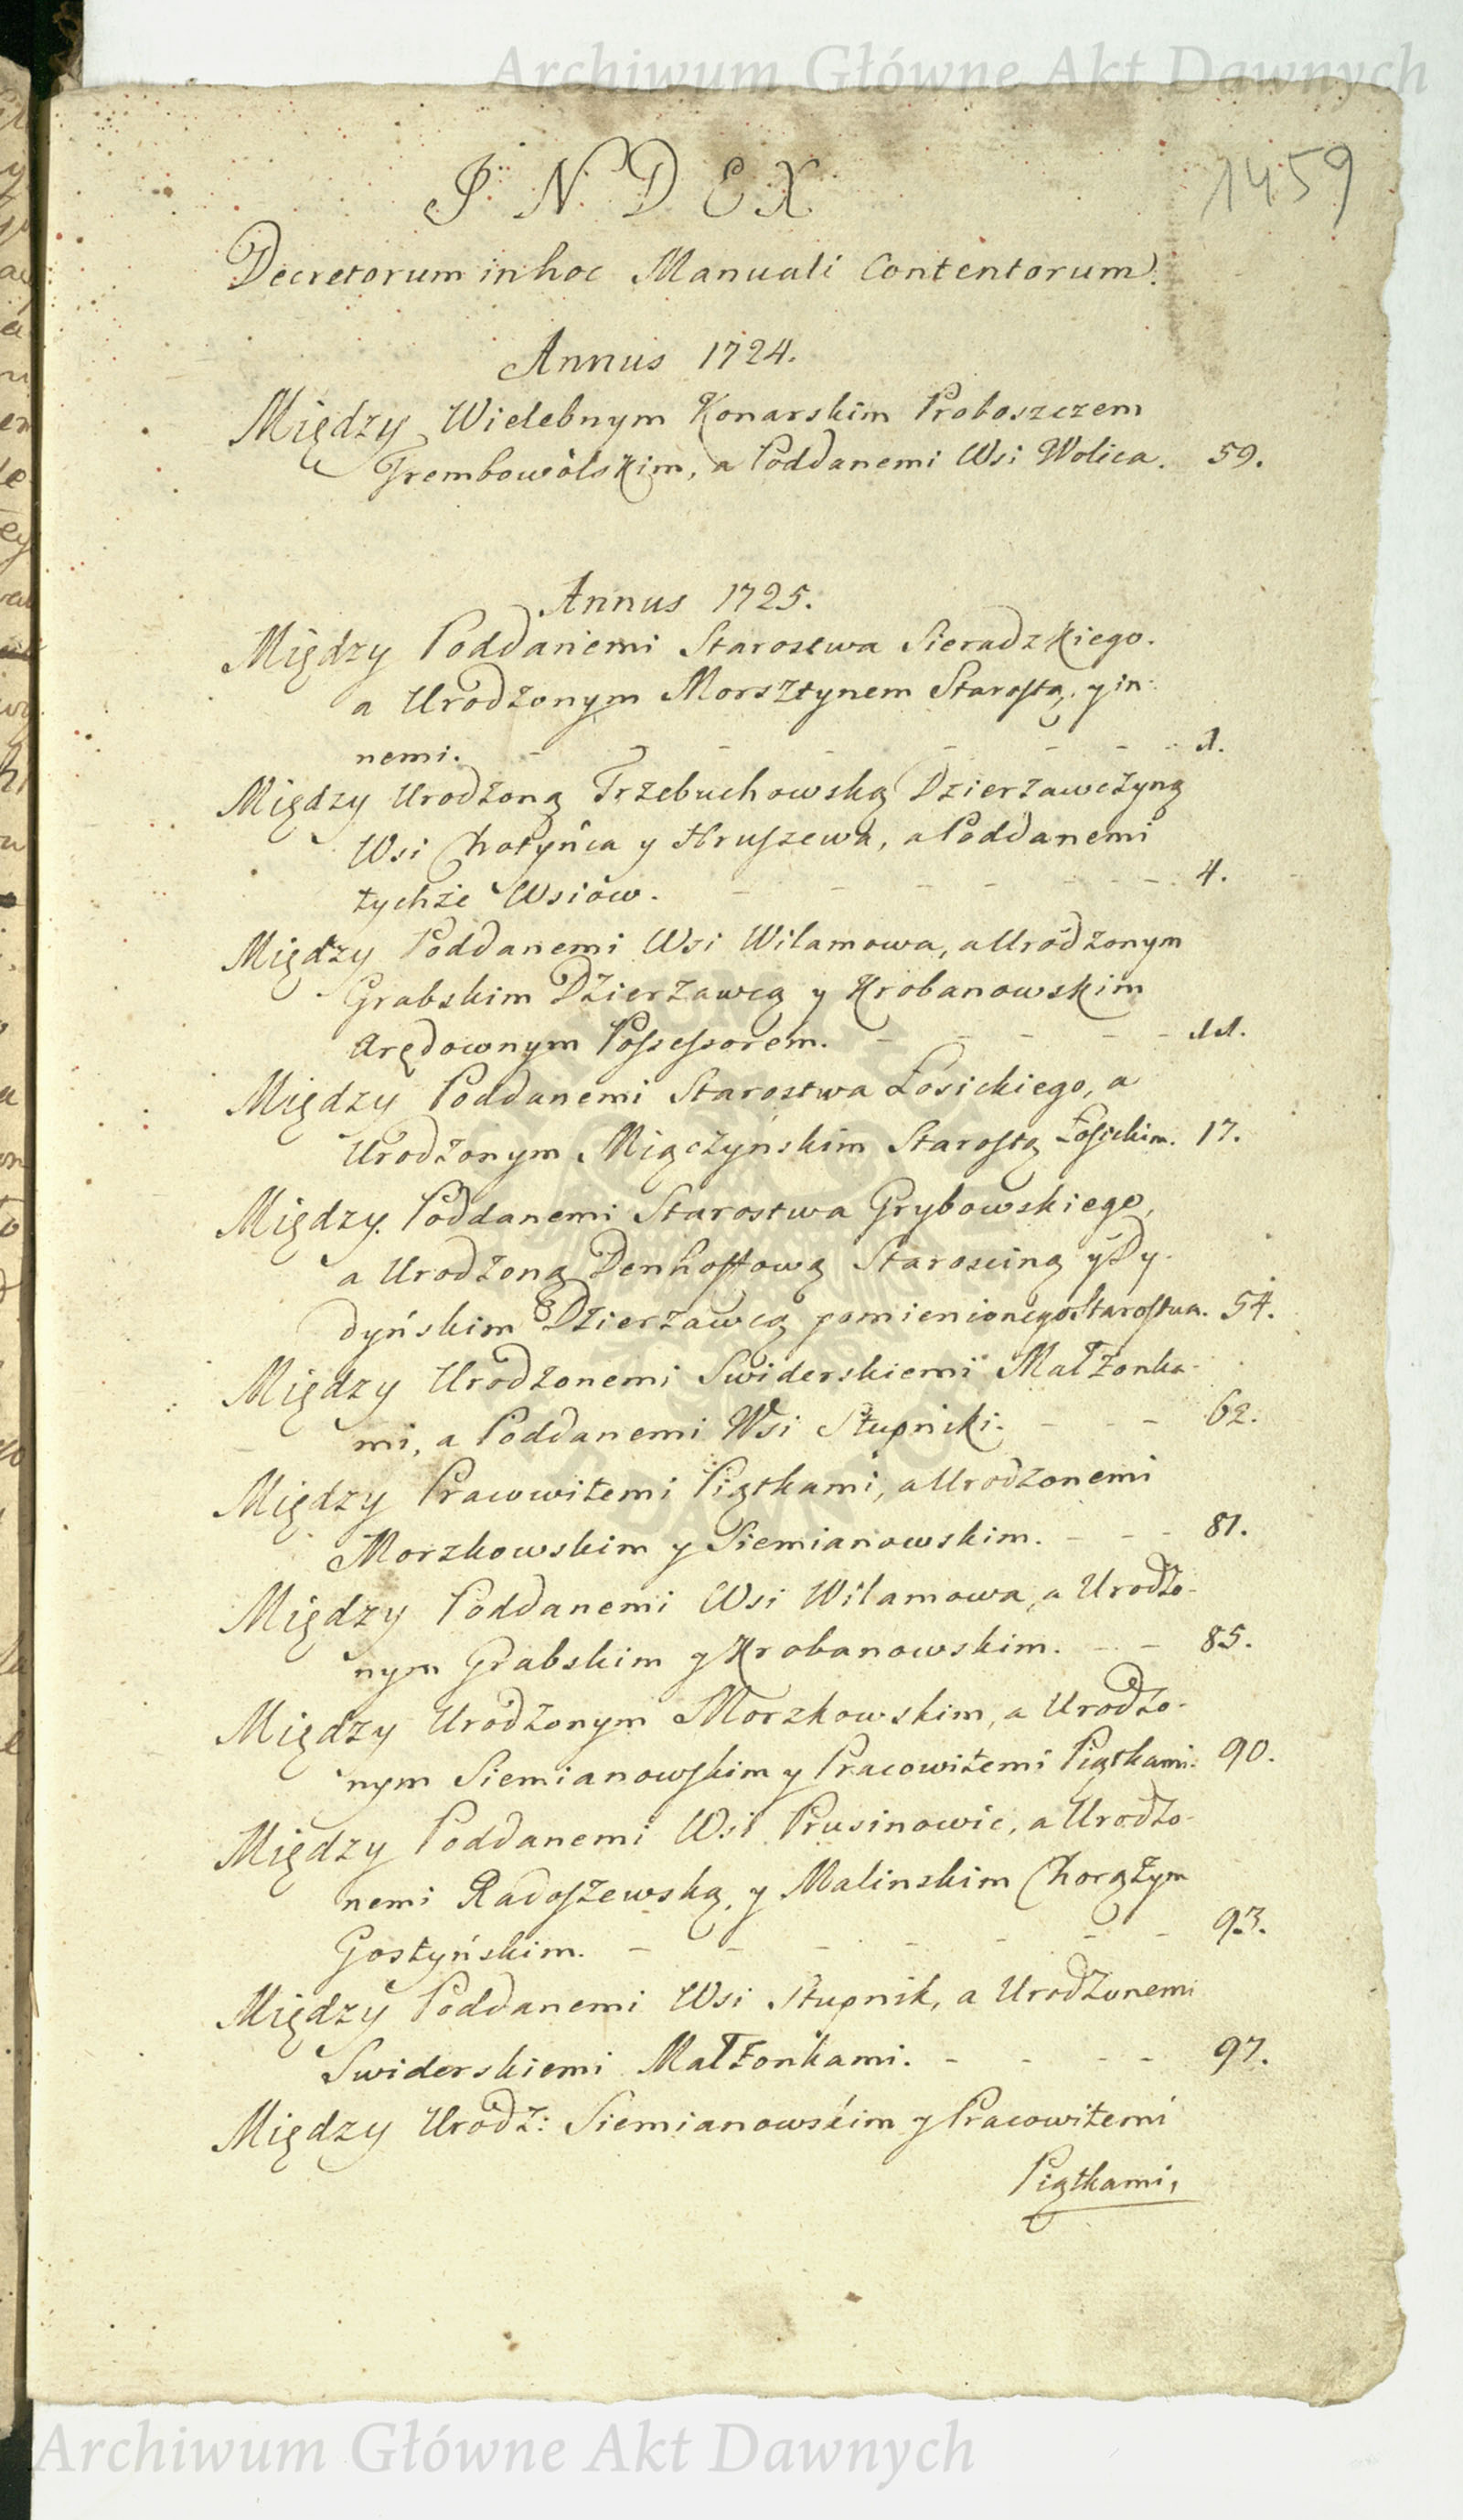 Archiwum Główne Akt Dawnych
1459
INDEX
Decretorum in hoc Manuali Contentorum.
Annus 1724.
Między Wielebnym Konarskim Proboszczem
Trembowolskim, a Poddanemi Wsi Wolica. 59.
Annus 1725.
Między Poddanemi Starostwa Sieradzkiego.
a Urodzonym Morsztynem Starostą, y in-
nemi. - - - - - - - 1.
Między Urodzoną Trzebuchowską Dzierzawczyną
Wsi Chotyńca y Hruszewa, a Poddanemi
tychże Wsiów. - - - - - - - 4.
Między Poddanemi Wsi Wilamowa, a Urodzonym
Grabskim Dzierzawcą y Krobanowskim
Arędownym Possessorem. - - - - - 11.
Między Poddanemi Starostwa Łosickiego, a
Urodzonym Miączyńskim Starostą Łosickim. 17.
Między Poddanemi Starostwa Grybowskiego,
a Urodzoną Denhoffową Starosciną y Dy-
dyńskim Dzierzawcą pomienionego Starostwa. 54.
Między Urodzonemi Swiderskiemi Małżonka-
mi, a Poddanemi Wsi Stupnicki. - - - 62.
Między Pracowitemi Piątkami, a Urodzonemi
Morzkowskim y Siemianowskim. - - - 81.
Między Poddanemi Wsi Wilamowa, a Urodzo-
nym Grabskim y Krobanowskim. - - 85.
Między Urodzonym Morzkowskim, a Urodzo-
nym Siemianowskim y Pracowitemi Piątkami. 90.
Między Poddanemi Wsi Prusinowic, a Urodzo-
nemi Radoszewską, y Malinskim Chorążym
Gostyńskim. - - - - - - - 93.
Między Poddanemi Wsi Stupnik, a Urodzonemi
Swiderskiemi Małżonkami. - - - - 97.
Między Urodz: Siemianowskim y Pracowitemi
Piątkami,
Archiwum Główne Akt Dawnych